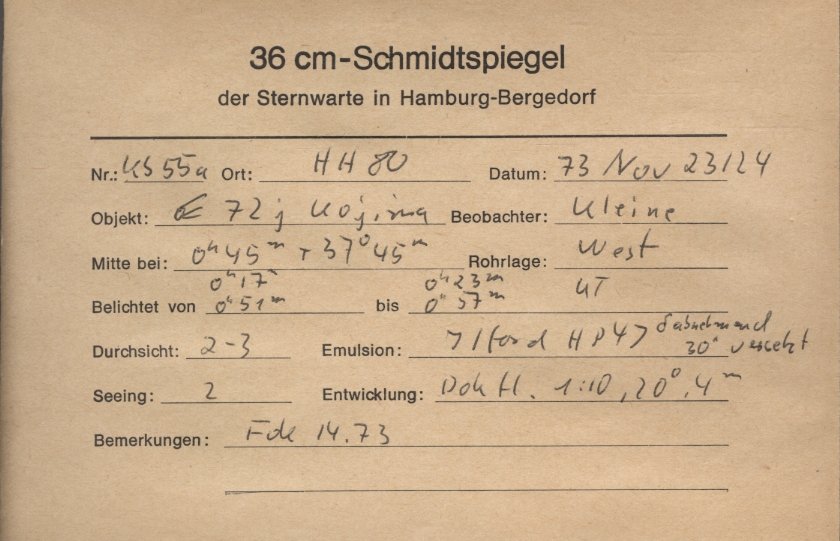 36 cm-Schmidtspiegel
der Sternwarte in Hamburg-Bergedorf
Nr.: KS 55a Ort: HH 80 Datum: 73 Nov 23/24
Objekt: 72 j Kojima Beobachter: Kleine
Mitte bei: 0h 45m + 37° 45m Rohrlage: West
0h 17m 0h 23m
Belichtet von 0h 51m bis 0h 57m UT
Durchsicht: 2-3 Emulsion: Ilford HP4 δ abnehmend
30" versetzt
Seeing: 2 Entwicklung: Dok fl. 1:10, 20°, 4m
Bemerkungen: Fde 14.73